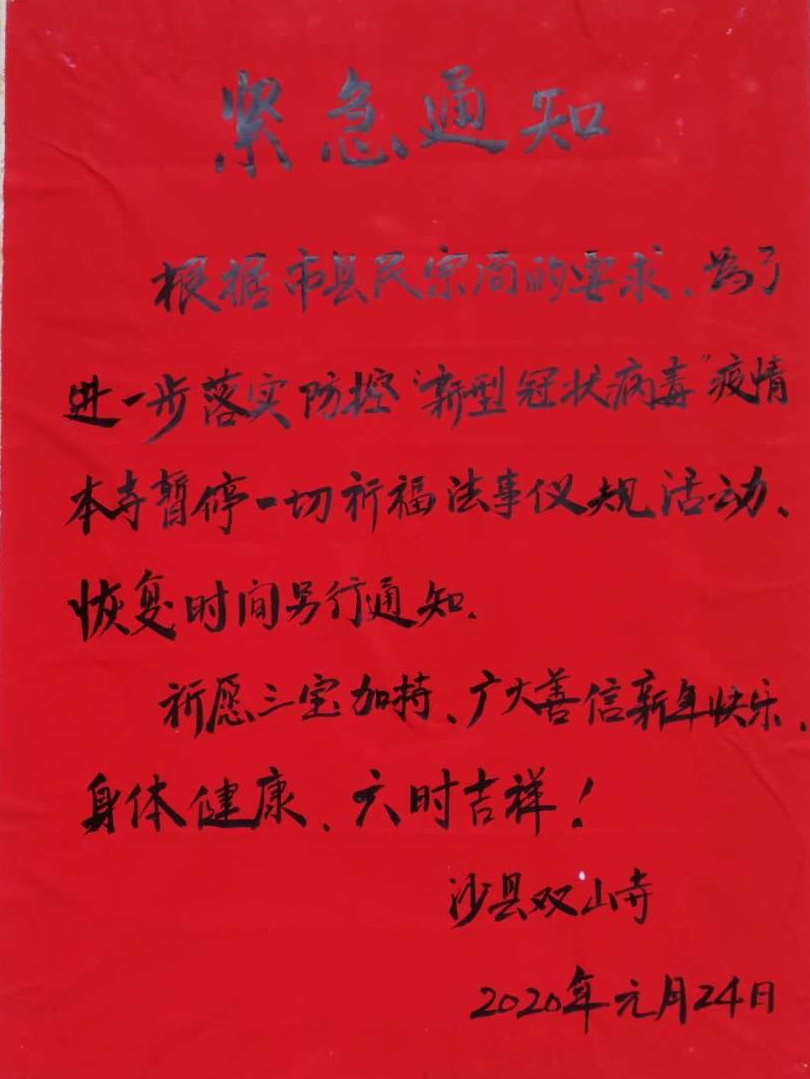 紧急通知
根据市县民宗局的要求、为了
进一步落实防控“新型冠状病毒”疫情
本寺暂停一切祈福法事仪规活动、
恢复时间另行通知.
祈愿三宝加持、广大善信新年快乐、
身体健康、六时吉祥！
沙县双山寺
2020年元月24日